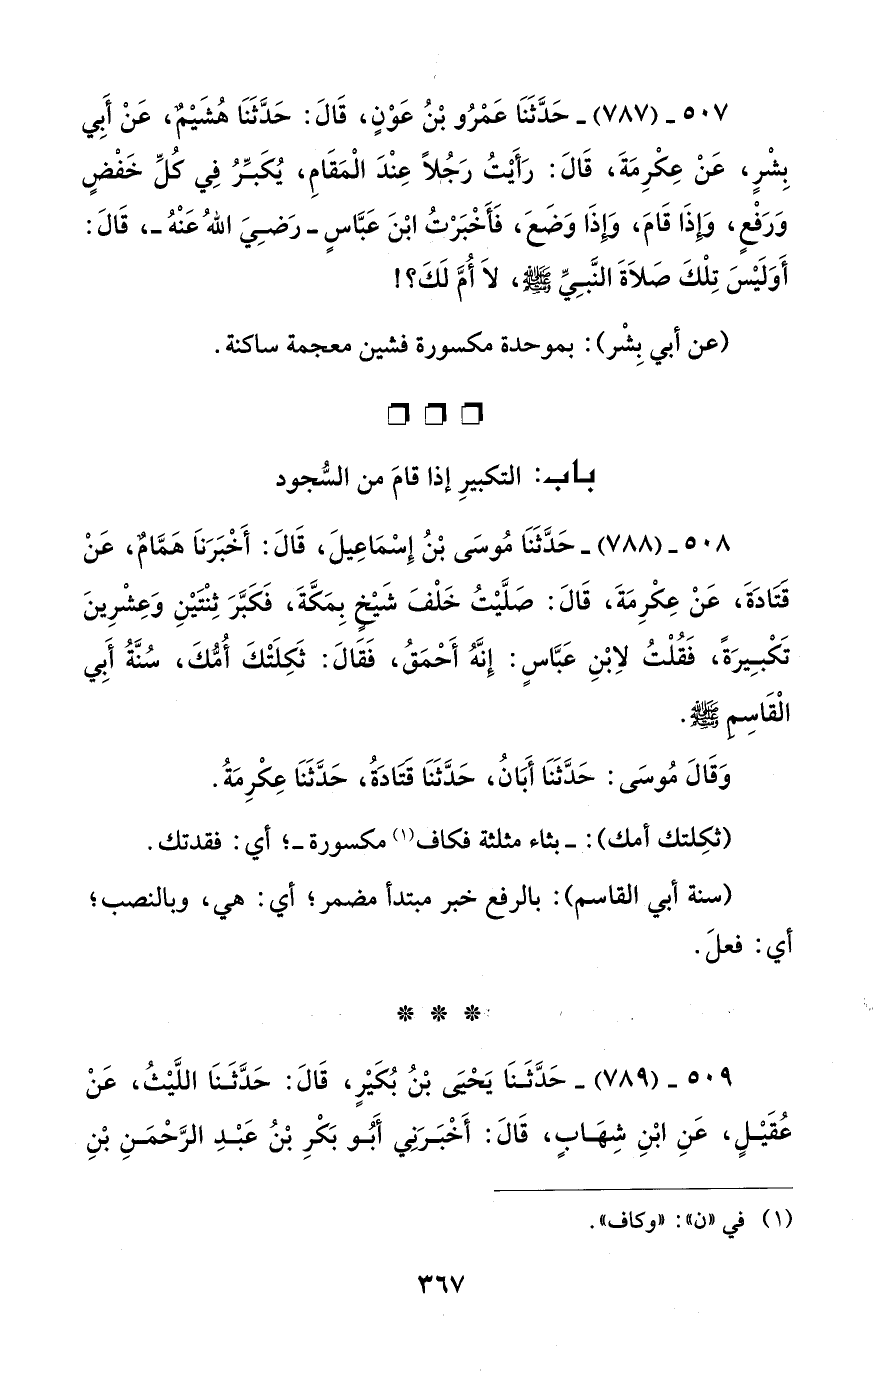 ٥٠٧ ـ (٧٨٧) ـ حَدَّثَنَا عَمْرُو بْنُ عَوْنٍ، قَالَ: حَدَّثَنَا هُشَيْمٌ، عَنْ أَبِي
بِشْرٍ، عَنْ عِكْرِمَةَ، قَالَ: رَأَيْتُ رَجُلاً عِنْدَ الْمَقَامِ، يُكَبِّرُ فِي كُلِّ خَفْضٍ
وَرَفْعٍ، وَإِذَا قَامَ، وَإِذَا وَضَعَ، فَأَخْبَرْتُ ابْنَ عَبَّاسٍ ـ رَضِيَ اللهُ عَنْهُ ـ، قَالَ:
أَوَلَيْسَ تِلْكَ صَلاَةَ النَّبِيِّ ﷺ، لاَ أُمَّ لَكَ؟!
(عن أبي بِشْر): بموحدة مكسورة فشين معجمة ساكنة.
❐ ❐ ❐
باب: التكبيرِ إذا قامَ من السُّجود
٥٠٨ ـ (٧٨٨) ـ حَدَّثَنَا مُوسَى بْنُ إِسْمَاعِيلَ، قَالَ: أَخْبَرَنَا هَمَّامٌ، عَنْ
قَتَادَةَ، عَنْ عِكْرِمَةَ، قَالَ: صَلَّيْتُ خَلْفَ شَيْخٍ بِمَكَّةَ، فَكَبَّرَ ثِنْتَيْنِ وَعِشْرِينَ
تَكْبِيرَةً، فَقُلْتُ لاِبْنِ عَبَّاسٍ: إِنَّهُ أَحْمَقُ، فَقَالَ: ثَكِلَتْكَ أُمُّكَ، سُنَّةُ أَبِي
الْقَاسِمِ ﷺ.
وَقَالَ مُوسَى: حَدَّثَنَا أَبَانُ، حَدَّثَنَا قَتَادَةُ، حَدَّثَنَا عِكْرِمَةُ.
(ثكِلتك أمك): ـ بثاء مثلثة فكاف(١) مكسورة ـ؛ أي: فقدتك.
(سنة أبي القاسم): بالرفع خبر مبتدأ مضمر؛ أي: هي، وبالنصب؛
أي: فعلَ.
* * *
٥٠٩ ـ (٧٨٩) ـ حَدَّثَنَا يَحْيَى بْنُ بُكَيْرٍ، قَالَ: حَدَّثَنَا اللَّيْثُ، عَنْ
عُقَيْلٍ، عَنِ ابْنِ شِهَابٍ، قَالَ: أَخْبَرَنِي أَبُو بَكْرِ بْنُ عَبْدِ الرَّحْمَنِ بْنِ
(١) في «ن»: «وكاف».
٣٦٧